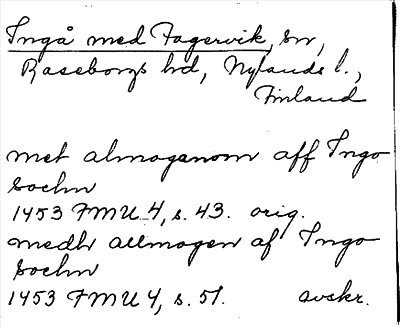 Ingå med Fagervik, sn,
Raseborgs hd, Nylands l.,
Finland
met almogenom aff Ingo
sochn
1453 FMU 4, s. 43. orig.
medh allmogen af Ingo
sochn
1453 FMU 4, s. 51. avskr.